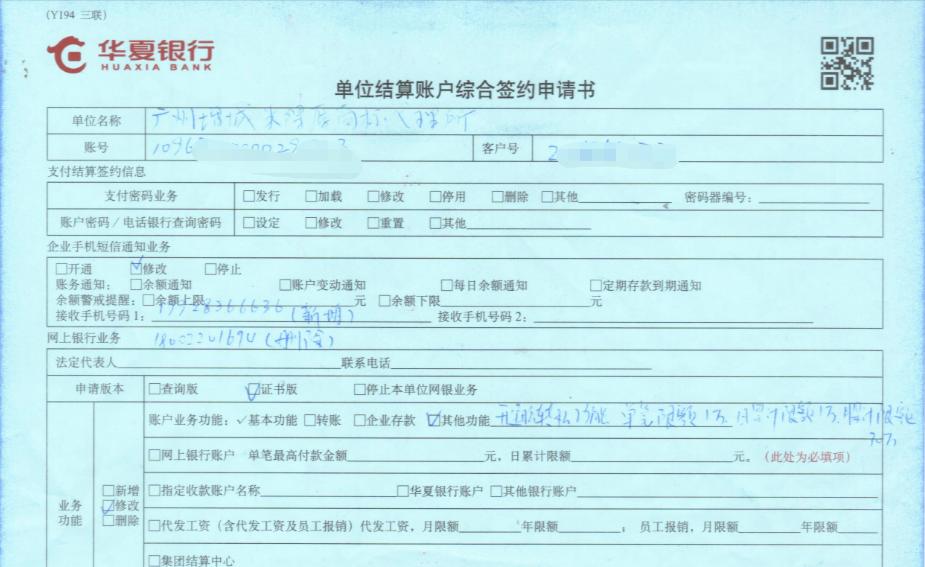 (Y194 三联)
华夏银行
HUAXIA BANK
单位结算账户综合签约申请书
单位名称 广州增城 商标 理所
账号 客户号
支付结算签约信息
支付密码业务 □发行 □加载 □修改 □停用 □删除 □其他 密码器编号:
账户密码/电话银行查询密码 □设定 □修改 □重置 □其他
企业手机短信通知业务
□开通 ☑修改 □停止
账务通知: □余额通知 □账户变动通知 □每日余额通知 □定期存款到期通知
余额警戒提醒: □余额上限 元 □余额下限 元
接收手机号码1: (新增) 接收手机号码2:
网上银行业务 (删除)
法定代表人 联系电话
申请版本 □查询版 ☑证书版 □停止本单位网银业务
账户业务功能: ✓基本功能 □转账 □企业存款 ☑其他功能 开通转私功能 单笔限额1万 日累计限额1万 月累计限额
□网上银行账户 单笔最高付款金额 元,日累计限额 元。(此处为必填项)
□指定收款账户名称 □华夏银行账户 □其他银行账户
业务功能 □新增 ☑修改 □删除
□代发工资(含代发工资及员工报销)代发工资,月限额 年限额 ; 员工报销,月限额 年限额
□集团结算中心